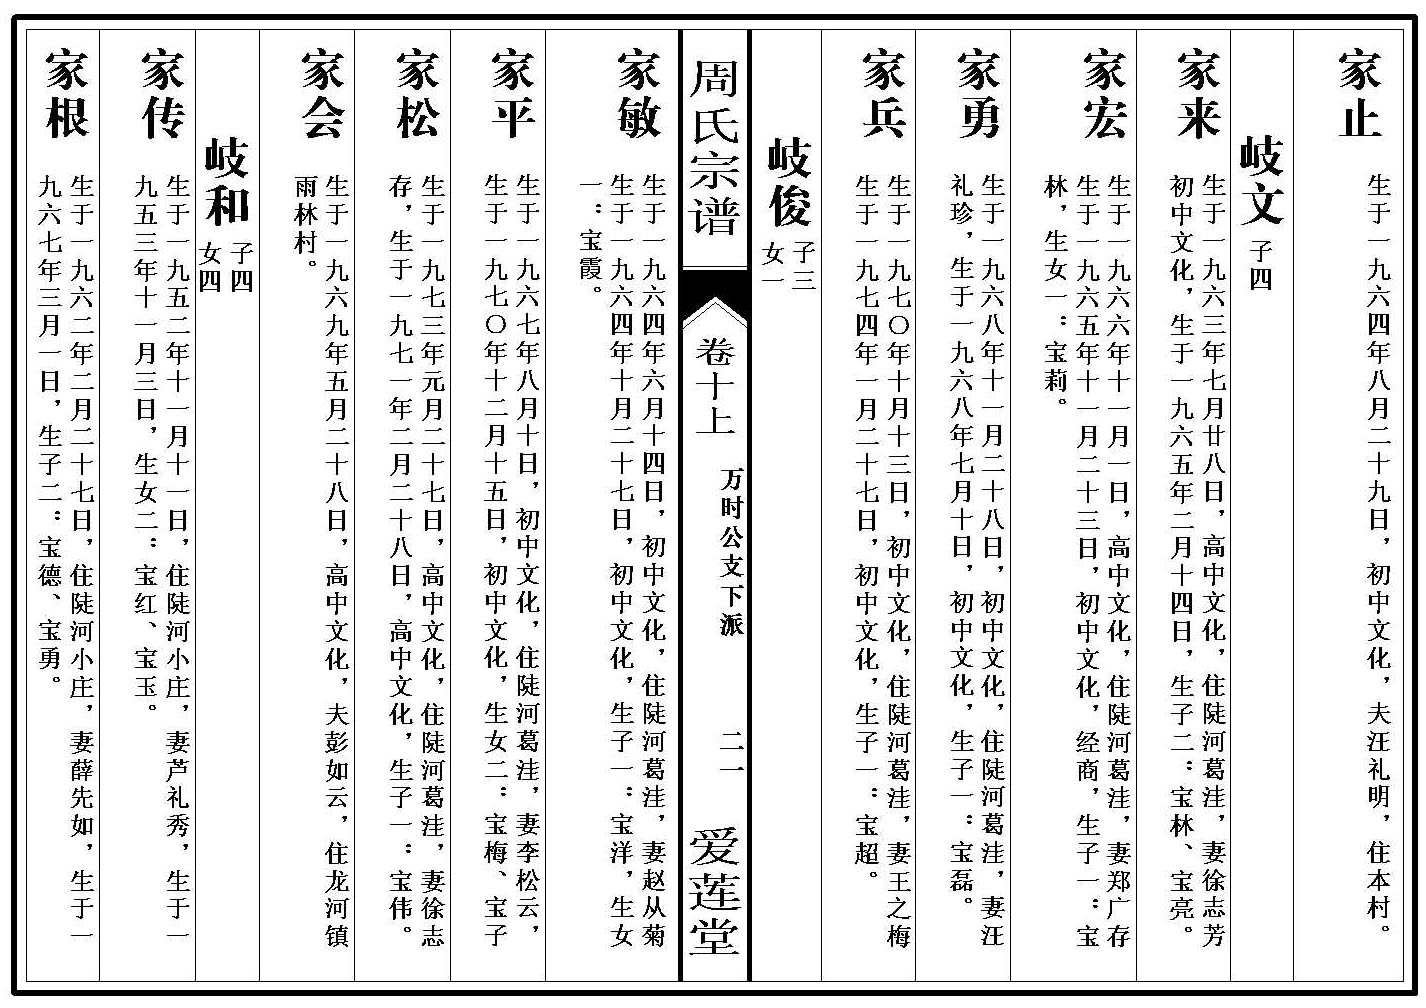 家止
生于一九六四年八月二十九日，初中文化，夫汪礼明，住本村。
岐文
子四
家来
生于一九六三年七月廿八日，高中文化，住陡河葛洼，妻徐志芳
初中文化，生于一九六五年二月十四日，生子二：宝林、宝亮。
家宏
生于一九六六年十一月一日，高中文化，住陡河葛洼，妻郑广存
生于一九六五年十一月二十三日，初中文化，经商，生子一：宝
林，生女一：宝莉。
家勇
生于一九六八年十一月二十八日，初中文化，住陡河葛洼，妻汪
礼珍，生于一九六八年七月十日，初中文化，生子一：宝磊。
家兵
生于一九七〇年十月十三日，初中文化，住陡河葛洼，妻王之梅
生于一九七四年一月二十七日，初中文化，生子一：宝超。
岐俊
子三
女一
周氏宗谱
卷十上
万时公支下派
二一
爱莲堂
家敏
生于一九六四年六月十四日，初中文化，住陡河葛洼，妻赵从菊
生于一九六四年十月二十七日，初中文化，生子一：宝洋，生女
一：宝霞。
家平
生于一九六七年八月十日，初中文化，住陡河葛洼，妻李松云，
生于一九七〇年十二月十五日，初中文化，生女二：宝梅、宝子
家松
生于一九七三年元月二十七日，高中文化，住陡河葛洼，妻徐志
存，生于一九七一年二月二十八日，高中文化，生子一：宝伟。
家会
生于一九六九年五月二十八日，高中文化，夫彭如云，住龙河镇
雨林村。
岐和
子四
女四
家传
生于一九五二年十一月十一日，住陡河小庄，妻芦礼秀，生于一
九五三年十一月三日，生女二：宝红、宝玉。
家根
生于一九六二年二月二十七日，住陡河小庄，妻薛先如，生于一
九六七年三月一日，生子二：宝德、宝勇。